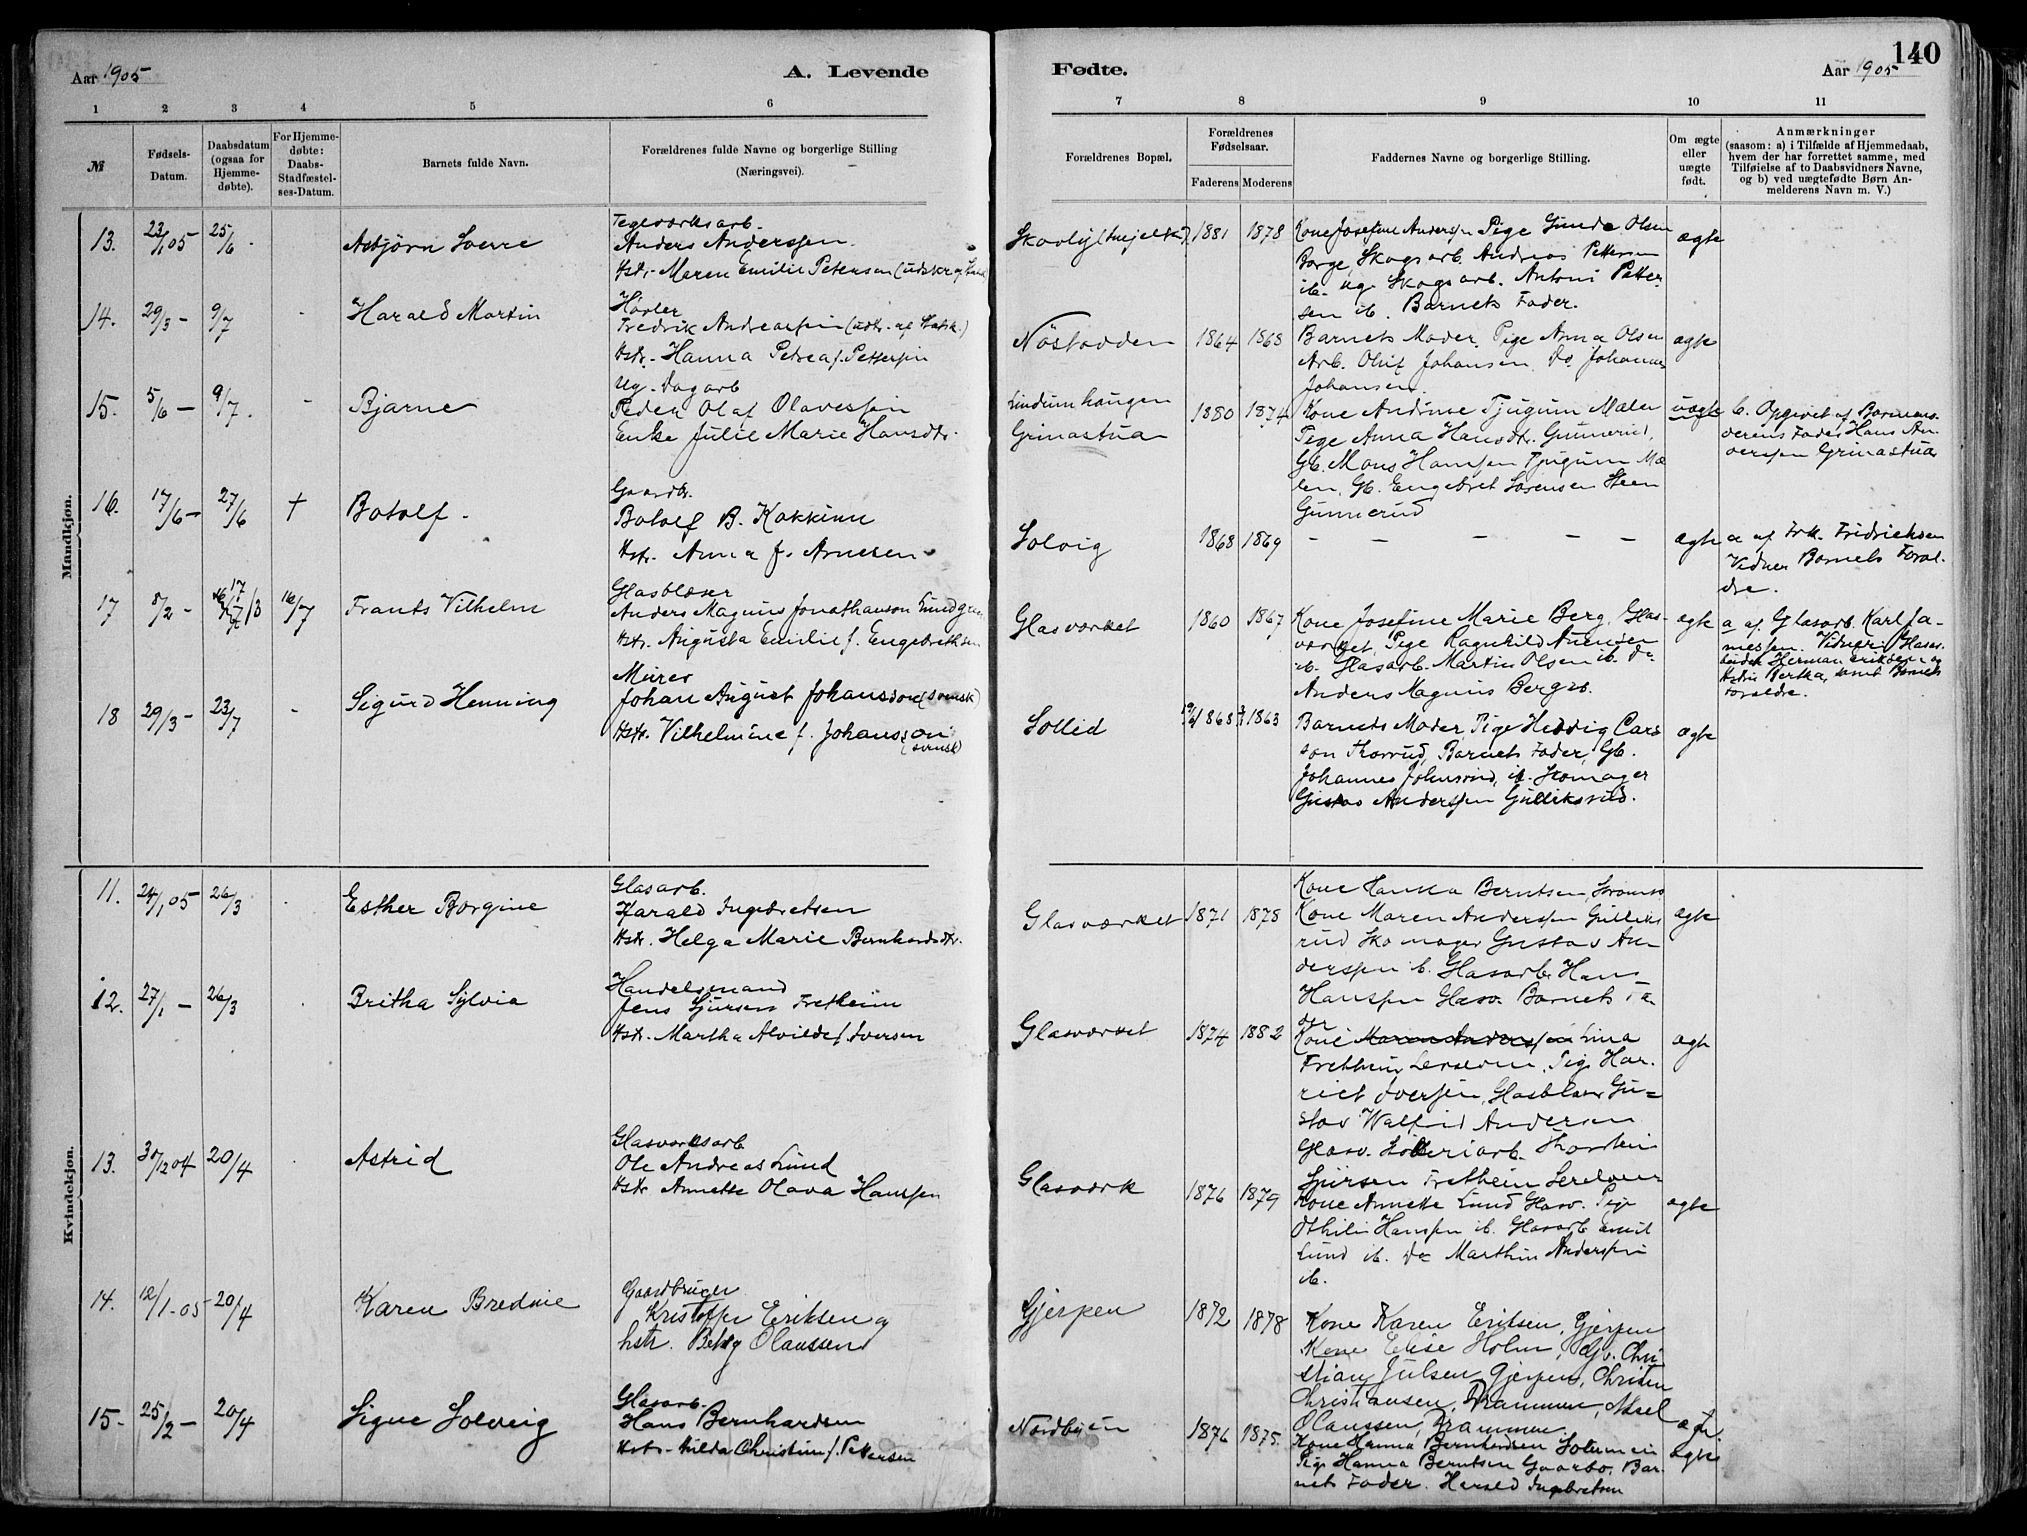 Aar 1905
A. Levende
Fødte.
Aar 1905
140
1 2 3 4 5 6 7 8 9 10 11
№
Fødsels-
Datum.
Daabsdatum
(ogsaa for
Hjemme-
døbte).
For Hjemme-
døbte:
Daabs-
Stadfæstel-
ses-Datum.
Barnets fulde Navn.
Forældrenes fulde Navne og borgerlige Stilling
(Næringsvei).
Forældrenes Bopæl.
Forældrenes
Fødselsaar.
Faderens
Moderens
Faddernes Navne og borgerlige Stilling.
Om ægte
eller
uægte
født.
Anmærkninger
(saasom: a) i Tilfælde af Hjemmedaab,
hvem der har forrettet samme, med
Tilføielse af to Daabsvidners Navne,
og b) ved uægtefødte Børn An-
melderens Navn m. V.)
Mandkjøn.
13. 23/1 05 25/6 Asbjørn Sverre
Teglværksarb.
Anders Anderssen
Hstr. Maren Emilie Petersen
1881 1878
Kone Josefine Anderssen Pige Gunda Olsen
Borge, Skogsarb. Andreas Pettersen
ib. ug. Skogsarb. Antoni Petter-
sen ib. Barnets Fader.
ægte
14. 29/3 - 9/7 Harald Martin
Høvler
Fredrik Andreassen
Hstr. Hanna Petrea f. Pettersen
Nøstodden 1864 1868
Barnets Moder, Pige Anna Olsen
Arb. Oluf Johansen, Do Johannes
Johansen.
ægte
15. 5/6 - 9/7. Bjarne
Ug. Dagarb
Peder Olaf Olavessen
Enke Julie Marie Hansdtr.
Lindumhaugen
Grinastua
1880 1874
Kone Andrine Tjugum Mælen
Pige Anna Hansdtr. Gunnerud,
Gb. Mons Hanssen Tjugum Mæ-
len, Gb. Engebret Sørensen Steen
Gunnerud
uægte
b. Opgivet af Barnemo-
derens Fader Hans An-
derssen Grinastua
16. 17/6 - 27/6 † Botolf.
Gaardbr.
Botolf B. Kokkinn
Hstr. Anna f. Arnesen
Solvig 1868 1869
- - - - -
ægte
a af Frk. Fridrichsen
Vidner Barnets Foræl-
dre.
17 8/2 - 16/7 Frants Vilhelm
Glasblæser
Anders Magnus Jonathanson Lundgren
Hstr. Augusta Emilie f. Engebrethsen
Glasværket 1860 1867
Kone Josefine Marie Berg, Glas-
værket, Pige Ragnhild Arnesen
ib. Glasarb. Martin Olsen ib. Do
Anders Magnus Berg ib.
ægte
a af Glasarb. Karl Ja-
messen. Vidner: Glass-
Herman Eriksen og
Hstru Bertha, samt Barnets
Forældre.
18 29/3 - 23/7 - Sigurd Henning
Murer
Johan August Johansson (svensk)
Hstr. Vilhelmine f. Johansson
(svensk)
Sollid 1868 1863
Barnets Moder, Pige Hedvig Cars-
son Thorrud, Barnets Fader, Gb.
Johannes Johnsrud, ib. Skomager
Gustav Anderssen Gulliksrud.
ægte
Kvindekjøn.
11. 24/1 05 26/3 Esther Borgine
Glasarb.
Harald Ingebretsen
Hstr. Helga Marie Bernhardsdtr.
Glasværket 1871 1878
Kone Hanna Berntsen,
Kone Maren Anderssen Gulliks-
rud Skomager Gustav An-
derssen ib. Glasarb. Hans
Hanssen Glasv. Barnets Fa-
der
ægte
12. 27/1 - 26/3 Britha Sylvia
Handelsmand
Jens Sjursen Fretheim
Hstr. Martha Alvilde f. Iversen
Glasværket 1874 1882
Kone Maren Anderssen Lina
Fretheim, Pige Har-
riet Iversen, Glasblæser Gu-
stav Walfrid Andersen
Glasv. Thorstein
Sjursen Fretheim
ægte
13. 30/12 04 20/4 Astrid
Glasværksarb
Ole Andreas Lund
Hstr Annette Olava Hanssen
Glasværk 1876 1879
Kone Annette Lund Glasv. Pige
Othilie Hanssen ib. Glasarb Emil
Lund ib. Do Marthin Anderssen
ib.
ægte
14. 12/1 - 05 20/4 Karen Bredine
Gaardbruger
Kristoffer Eriksen og
hstr. Betsy Olaussen
Gjerpen 1872 1878
Kone Karen Eriksen, Gjerpen
Kone Elise Holm, Gv. Chri-
stian Julsen Gjerpen, Christen
Christiansen, Drammen, Aksel
Olaussen, Drammen.
15. 25/2 - 20/4 Signe Solveig
Glasarb.
Hans Bernhardsen
Hstr. Hilda Christine f. Pettersen
Nordbyen 1876 1875.
Kone Hanna Bernhardsen
Pige Hanna Berntsen Gaarbo, Bar-
nets Fader. Harald Ingebretsen
ægte